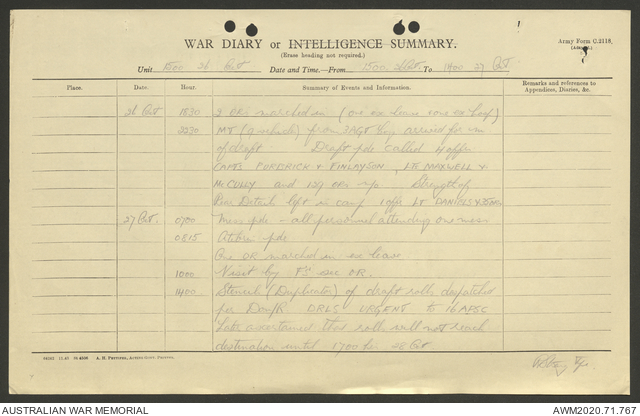 Army Form C.2118,
WAR DIARY or INTELLIGENCE SUMMARY.
(Erase heading not required.)
Unit 26 Oct Date and Time—From 1500 To 1400 27 Oct
Place. Date. Hour. Summary of Events and Information. Remarks and references to Appendices, Diaries, &c.
26 Oct 1830 2 ORs marched in (one ex leave one ex hosp)
2230 MT from arrived for
of draft. Draft pde called 4 offrs
CAPTS PURBRICK & FINLAYSON, LTS MAXWELL &
McCULLY and 127 ORs Strength of
Rear Details left in camp 1 offr LT DANIELS
27 Oct. 0700 Mess pde - all personnel attending one mess
0815 Atebrin pde.
One OR marched in ex leave
1000 Visit by sec OR.
1400 Stencil (Duplicator) of draft rolls despatched
per DRLS URGENT to
Later ascertained that rolls will not reach
destination until 1700 hr 28 Oct
AUSTRALIAN WAR MEMORIAL
AWM2020.71.767